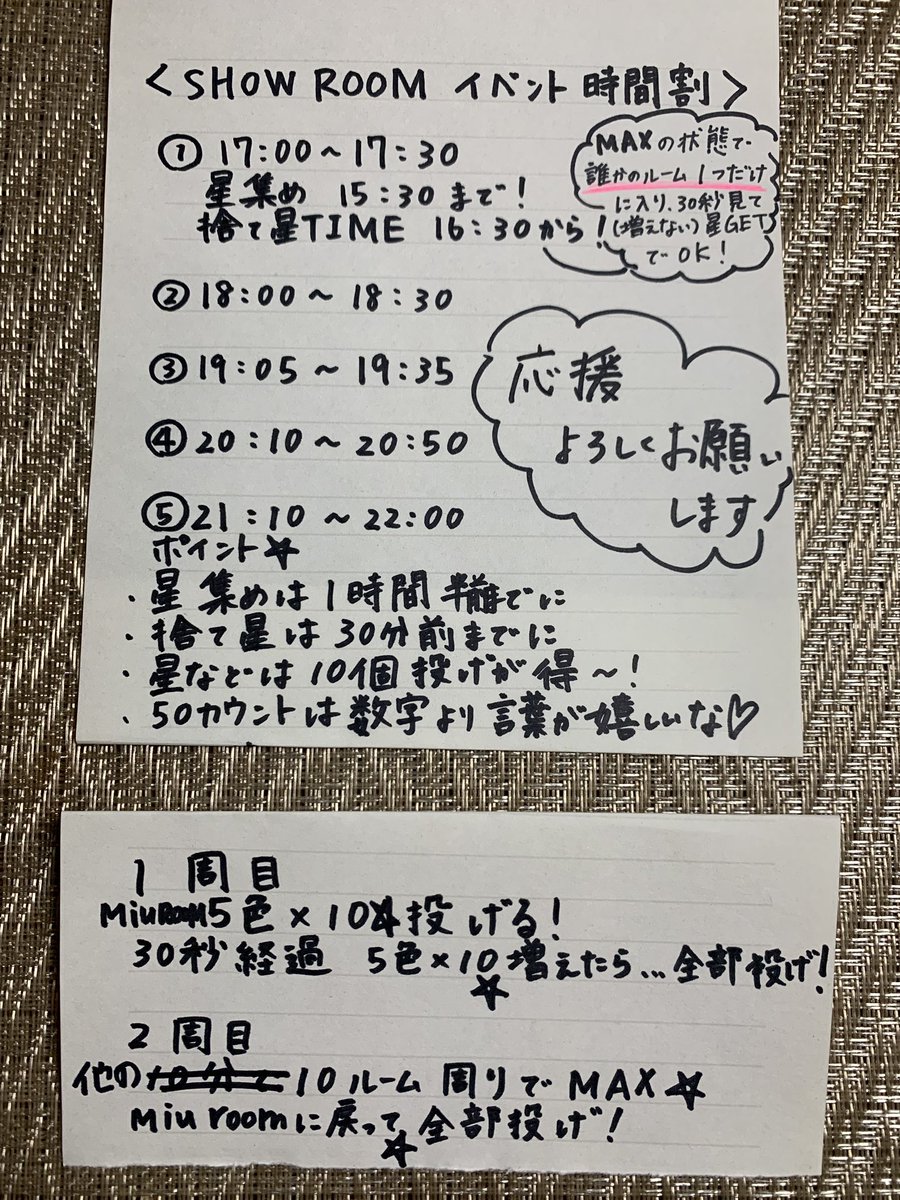 <SHOW ROOM イベント 時間割>
① 17:00~17:30
星集め 15:30まで!
捨て星TIME 16:30から!
MAXの状態で
誰かのルーム1つだけ
に入り、30秒見て
(増えない)星GET
でOK!
② 18:00~18:30
③ 19:05~19:35
④ 20:10~20:50
⑤ 21:10~22:00
応援
よろしくお願い
します
ポイント☆
・星集めは1時間半前までに
・捨て星は30分前までに
・星などは10個投げが得~!
・50カウントは数字より言葉が嬉しいな♡
1周目
Miu ROOM 5色×10投げる!
30秒経過 5色×10増えたら...全部投げ!
☆
2周目
他の10ルーム周りでMAX☆
Miu roomに戻って全部投げ!
☆